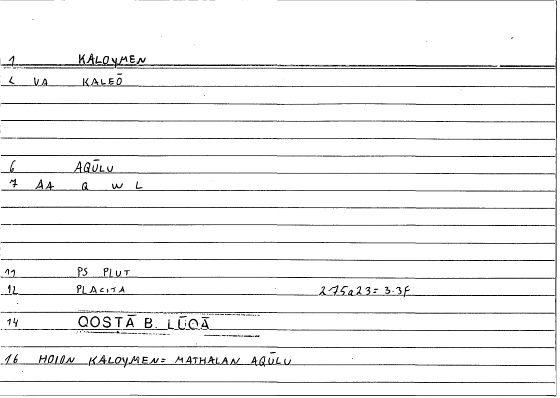 1 KALOYMEN
2 VA KALEŌ
6 AQŪLU
7 AA Q W L
11 PS PLUT
12 PLACITA 275a23=3.3f
14 QOSṬĀ B. LŪQĀ
16 HOION KALOYMEN= MATHALAN AQŪLU